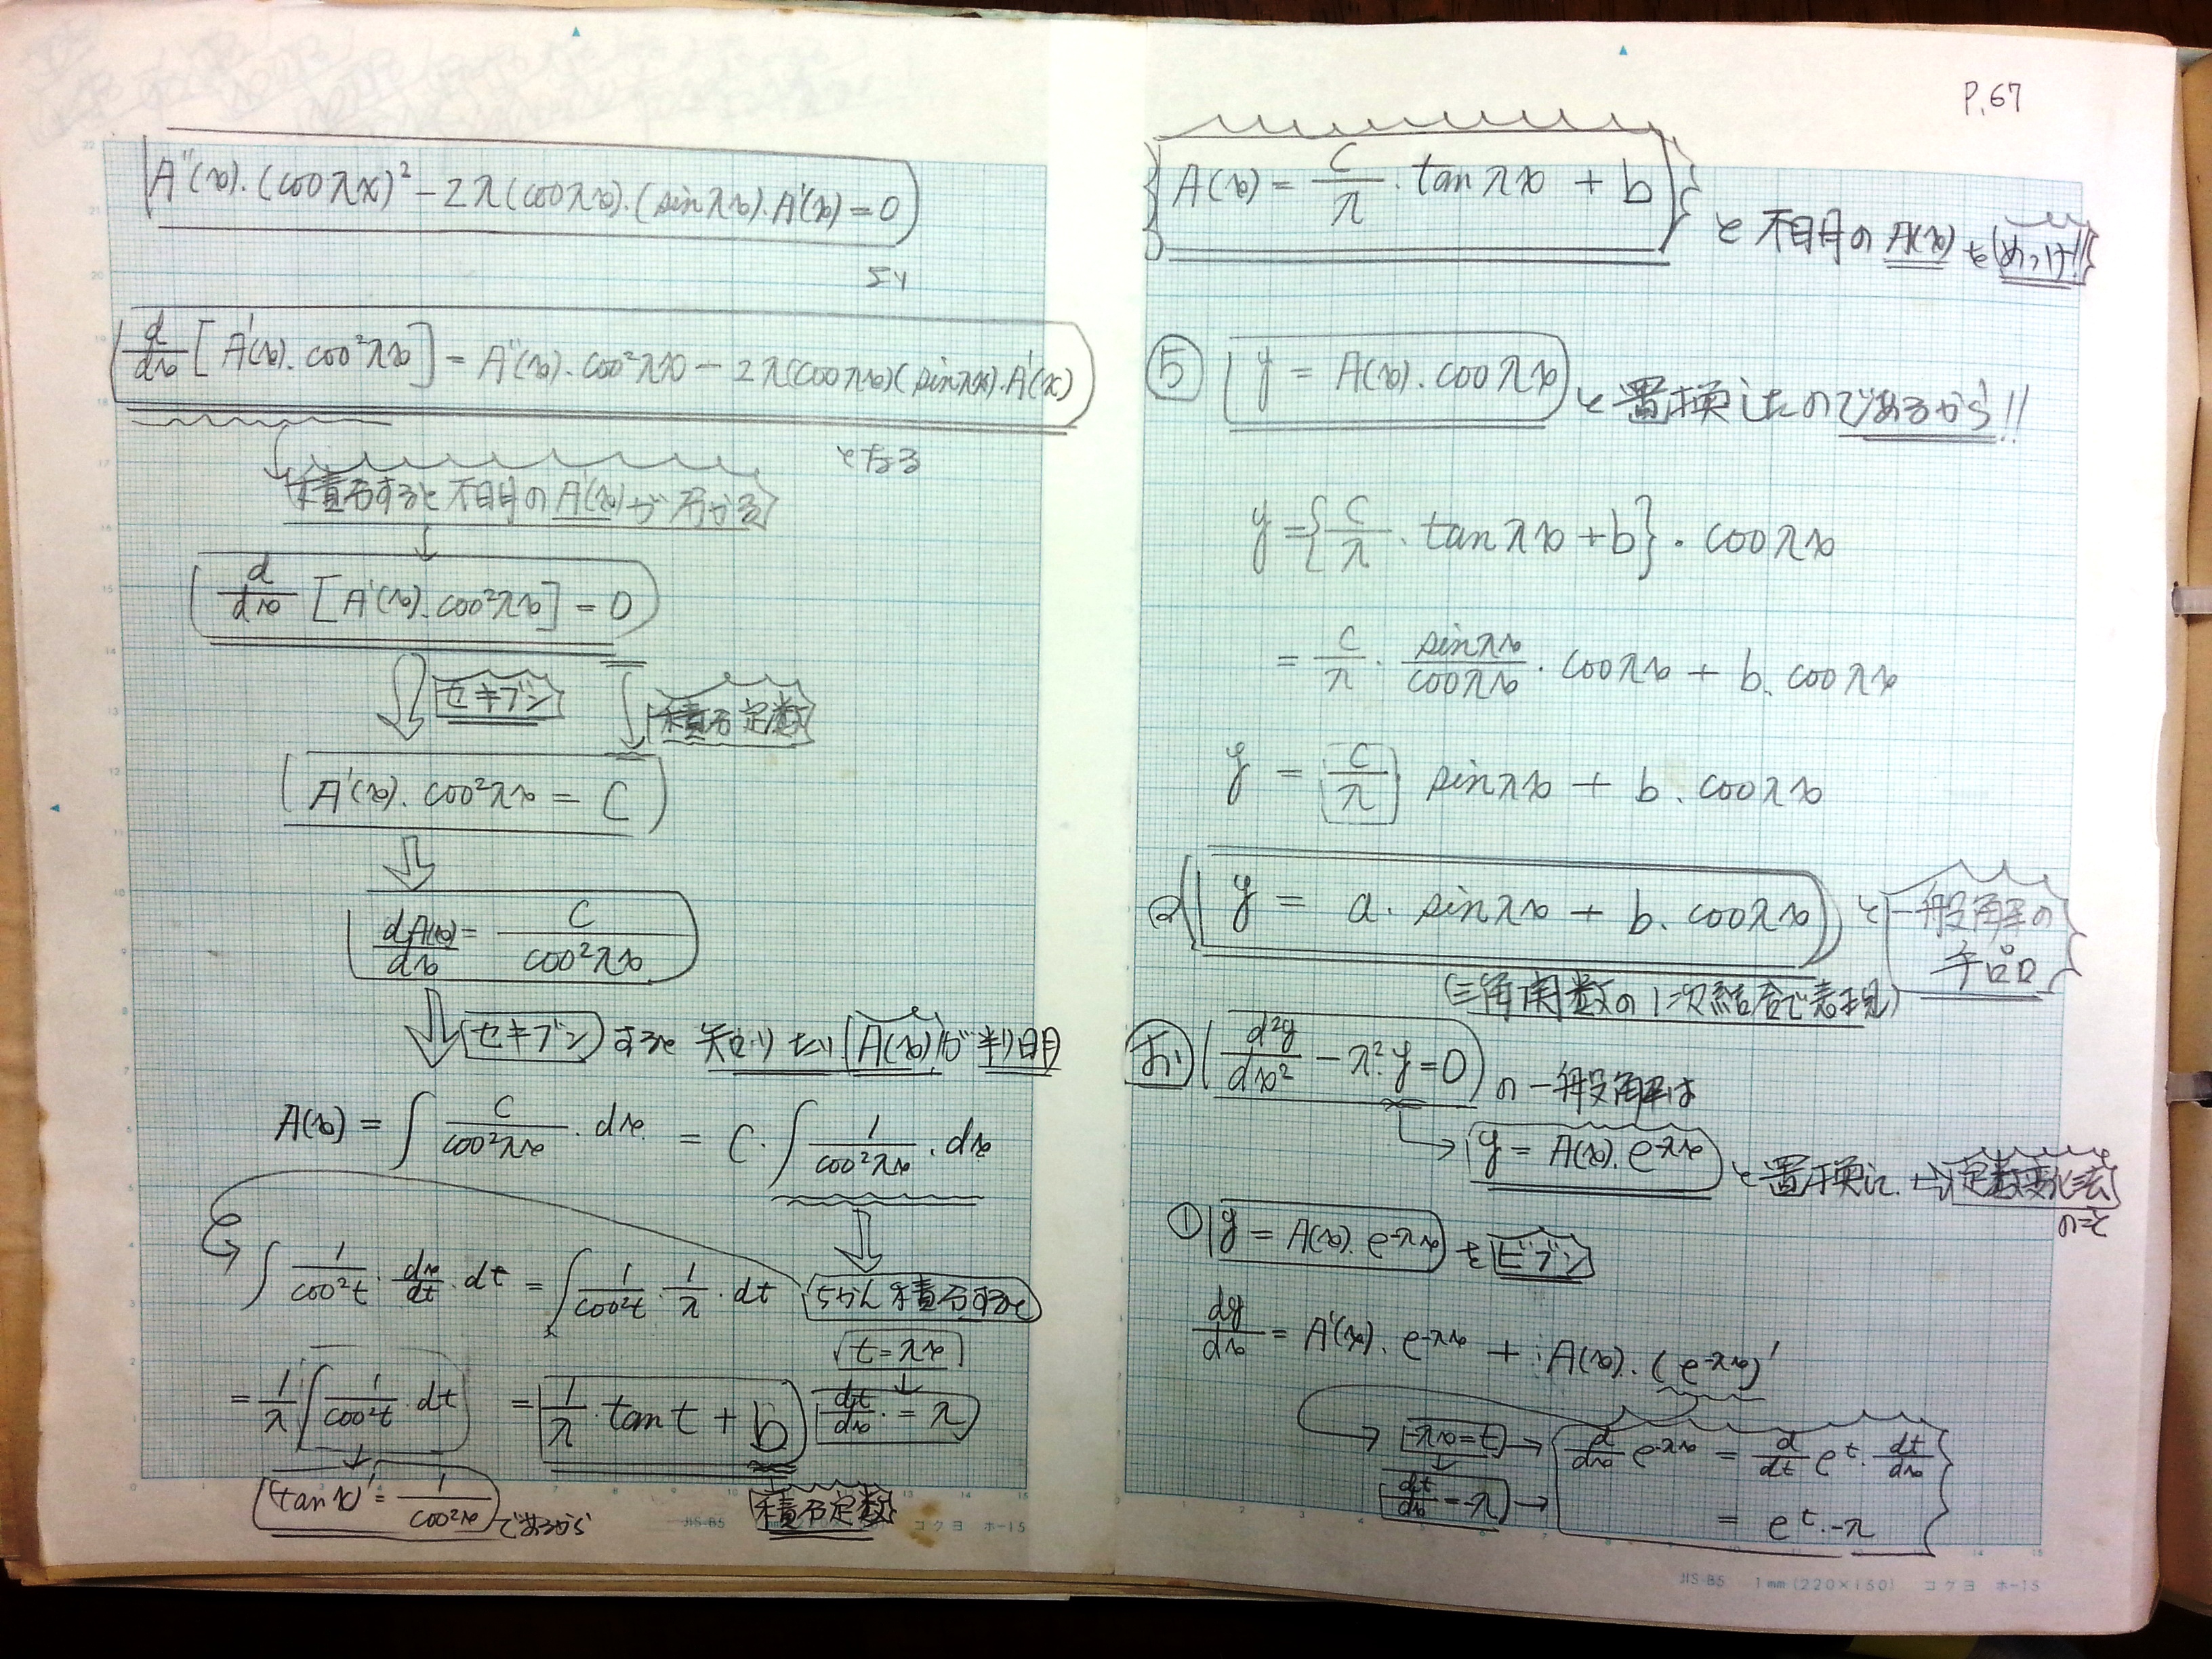 A''(x)・(cosλx)² - 2λ(cosλx)・(sinλx)・A'(x) = 0
より
d/dx [A'(x)・cos²λx] = A''(x)・cos²λx - 2λ(cosλx)(sinλx)・A'(x)
となる
積分すると不明のA'(x)が分かる
d/dx [A'(x)・cos²λx] = 0
セキブン 積分定数
A'(x)・cos²λx = C
dA(x)/dx = C/cos²λx
セキブン すると 知りたい A(x) が 判明
A(x) = ∫ C/cos²λx・dx = C・∫ 1/cos²λx・dx
∫ 1/cos²t・dx/dt・dt = ∫ 1/cos²t・1/λ・dt ちかん積分すると
t = λx
= 1/λ ∫ 1/cos²t・dt = 1/λ・tan t + b dt/dx・= λ
(tan x)' = 1/cos²x であるから 積分定数
JIS-B5 コクヨ ホ-15
P.67
A(x) = C/λ・tanλx + b と 不明の A(x) を めっけ!!
⑤ y = A(x)・cosλx と置換したのであるから!!
y = {C/λ・tanλx + b}・cosλx
= C/λ・sinλx/cosλx・cosλx + b・cosλx
y = C/λ sinλx + b・cosλx
y = a・sinλx + b・cosλx と 一般解の
(三角関数の1次結合で表現)
d²y/dx² - λ²・y = 0 の一般解は
y = A(x)・e^-λx と置換し ← 定数変化法
のこと
① y = A(x)・e^-λx を ビブン
dy/dx = A'(x)・e^-λx + A(x)・(e^-λx)'
-λx = t → d/dx e^-λx = d/dt e^t・dt/dx
dt/dx = -λ → = e^t・-λ
JIS-B5 1mm(220×150) コクヨ ホ-15